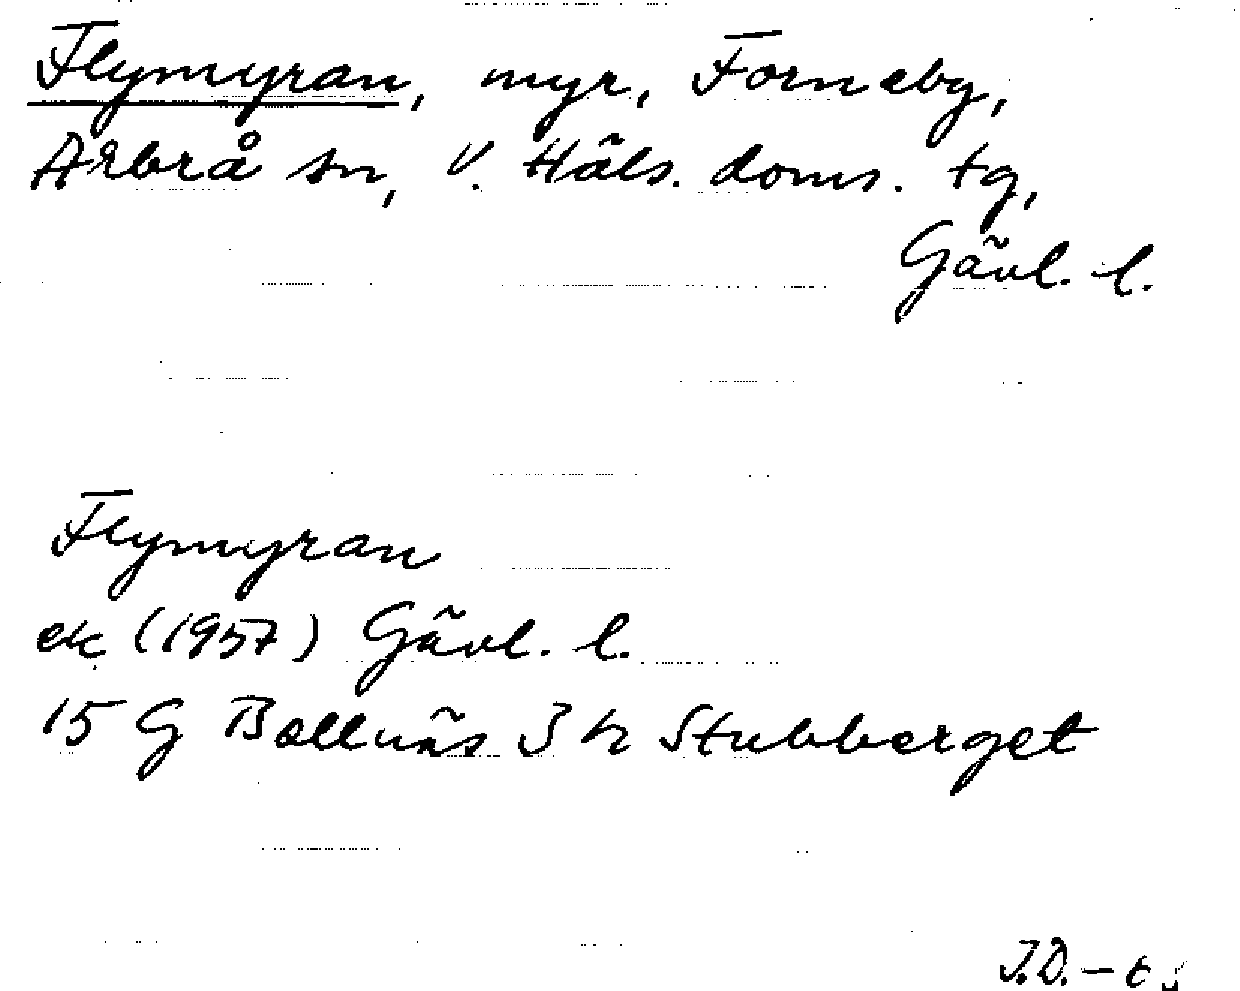 Flymyran, myr, Forneby,
Arbrå sn, V. Häls. doms. tg,
Gävl. l.
Flymyran
ek (1957) Gävl. l.
15 G Bollnäs 3 h Stubberget
J.D. –